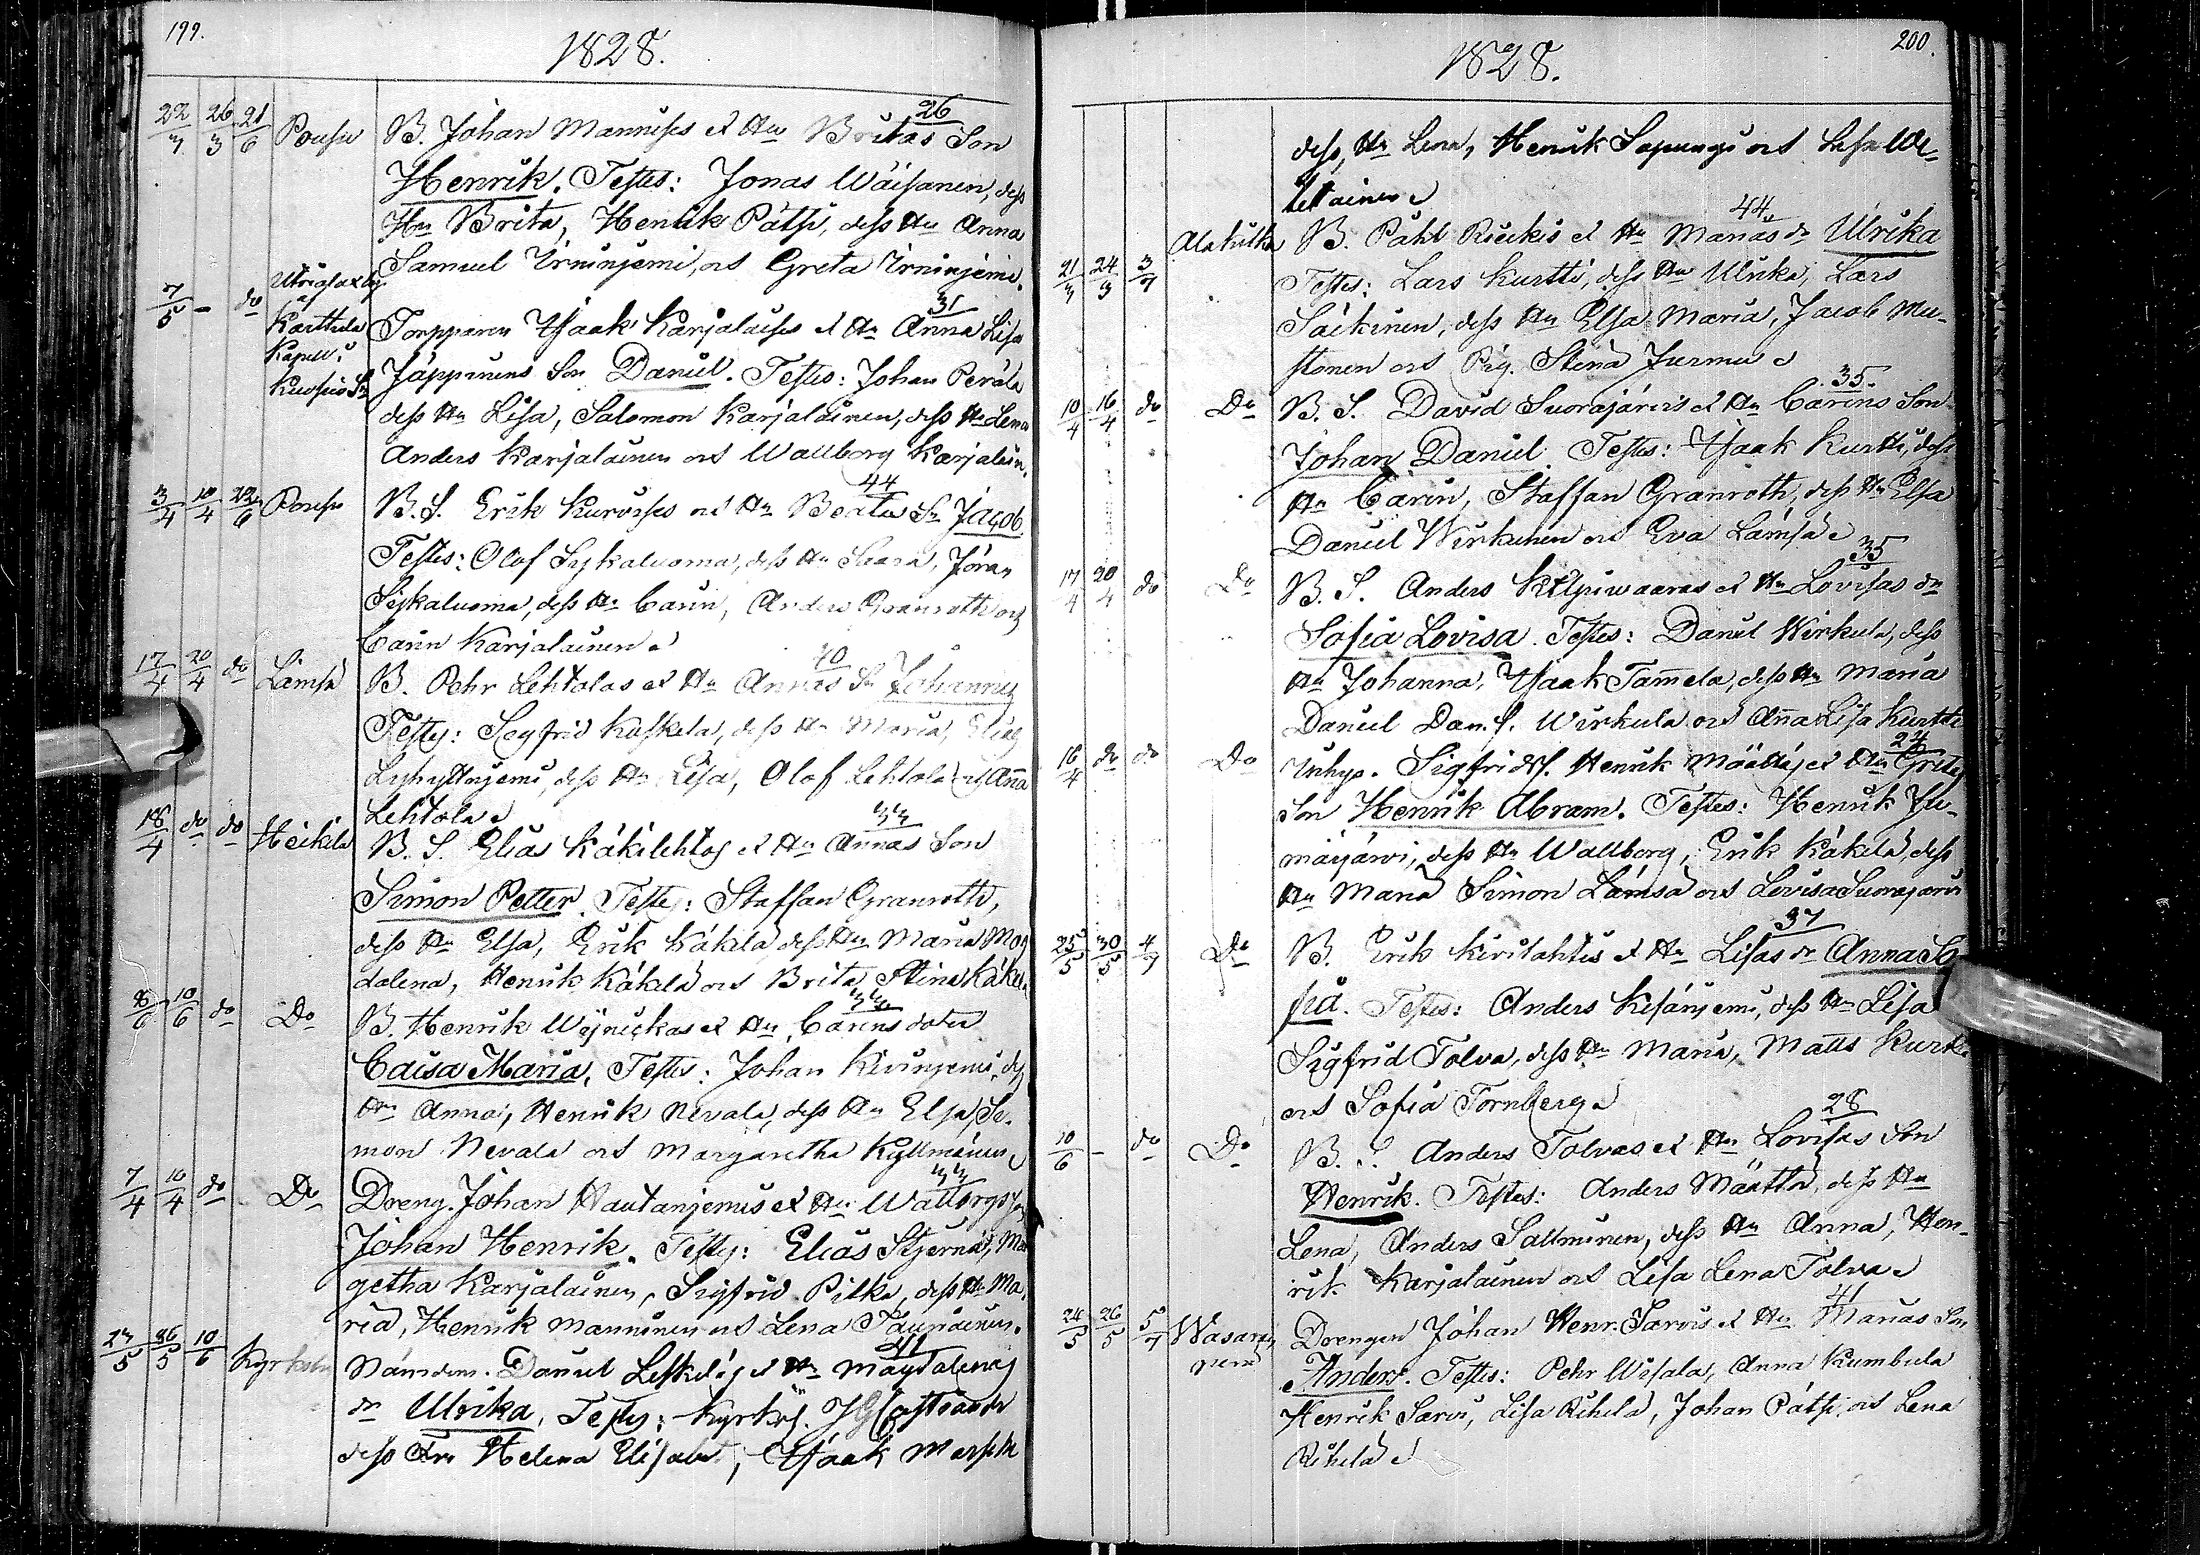 199.
1828.
22/3 26/3 21/6 Posio B. Johan Mannises et Hu Britas Son 26
Henrik. Testes: Jonas Wäisänen, dess
Hu Brita, Henrik Pätsi, dess Hu Anna
Samuel Irninjemi, ort Greta Irninjemi.
7/5 – do Karttula Kapell i Kuopio Torpparen Isaak Karjalaises et Hu Anna Lisa 31
Jäppinens Son Daniel. Testes: Johan Perälä
dess Hu Lisa, Salomon Karjalainen, dess Hu Lena
Anders Karjalainen ort Wallborg Karjalain.
3/4 10/4 22/6 Posio B. S. Erik Kurvises et Hu Beatas Sn Jacob 44
Testes: Olof Sykaluoma, dess Hu Saara, Jöran
Sykaluoma, dess Hu Carin, Anders Granroth ort
Carin Karjalainen
17/4 20/4 do Lämsä B. Pehr Lehtolas et Hu Annas Sn Johannes 40
Testes: Segfrid Koskela, dess Hu Maria, Elias
dess Hu Lisa, Olof Lehtola ort Anna
Lehtola
18/4 do do Heikilä B. S. Elias Käkilehtos et Hu Annas Son 33
Simon Petter. Testes: Staffan Granroth,
dess Hu Elsa, Erik Käkelä dess Hu Maria Mag
dalena, Henrik Käkelä ort Brita Stina Käkelä
8/6 10/6 do Do B. Henrik Wäjnickas et Hu Carins doter 33
Caisa Maria. Testes: Johan Kivinjemi, dess
Hu Anna, Henrik Nevala, dess Hu Elsa, Si-
mon Nevala ort Margaretha Kyllmänen
7/4 10/4 do Do Dreng. Johan Hautanjemis et Hu Wallborgs Son 33
Johan Henrik. Testes: Elias Stjerna, Mar
getha Karjalainen, Sigfrid Pilke, dess Hu Ma
ria, Henrik Manninen ort Lena Taurainen.
23/5 26/5 10/6 Kyrkoh Nämndem. Daniel Leskeläs et Hu Magdalenas 41
dr Ulrika, Testes: Kyrkoh. J G Castrander
dess Fru Helena Elisabet, Isaak
200.
1828.
dess Hu Lena, Henrik Sapungi ort Lisa
21/3 24/3 3/7 Alakitka B. Påhl Riekkis et Hu Marias dr Ulrika 44
Testes: Lars Kurtti, dess Hu Ulrika, Lars
Säikinen, dess Hu Elsa Maria, Jacob Mu-
stonen ort Pig. Stina Jurmu
10/4 16/4 do Do B. S. David Suorajärvis et Hu Carins Son 35
Johan Daniel. Testes: Isaak Kurtti, dess
Hu Carin, Staffan Granroth, dess Hu Elsa
Daniel Wirkunen ort Eva Lämsä
17/4 20/4 do Do B. S. Anders Kilpiwaaras et Hu Lovisas dr 35
Sofia Lovisa. Testes: Daniel Wirkula, dess
Hu Johanna, Isaak Tamela, dess Hu Maria
Daniel Dan. S. Wirkula ort Anna Lisa Kurtti
16/4 do do Do Inhys. Sigfrids S. Henrik Määttäs et Hu Gretas 24
Son Henrik Abram. Testes: Henrik Ju-
majärvi, dess Hu Wallborg, Erik Käkelä, dess
Hu Maria Simon Lämsä ort Lovisa Suorajärvi
25/5 30/5 4/7 Do B. Erik Kirilahtis et Hu Lisas dr Anna So- 37
fia. Testes: Anders Kisänjemi, dess Hu Lisa
Sigfrid Tolva, dess Hu Maria, Matts Kurtti
ort Sofia Tornberg
10/6 – do Do B. S. Anders Tolvas et Hu Lovisas Son 28
Henrik. Testes: Anders Määttä, dess Hu
Lena, Anders Sallminen, dess Hu Anna, Hen-
rik Karjalainen ort Lisa Lena Tolva
24/5 26/5 5/7 Wasaranjemi Drengen Johan Henr. Särvis et Hu Marias Son 41
Anders. Testes: Pehr Wisala, Anna Kumbula
Henrik Särvi, Lisa Rihelä, Johan Pätsi, ort Lena
Rihelä